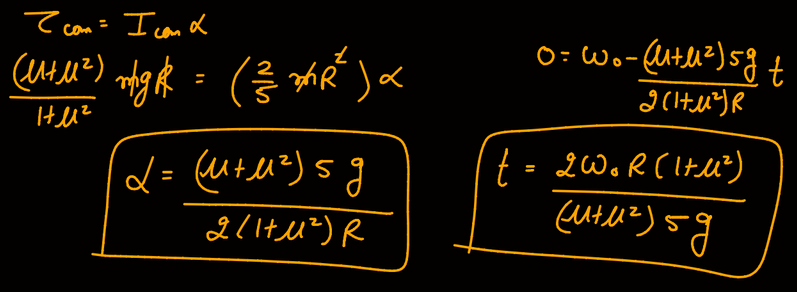 τ_com = I_com α
(μ+μ²)/(1+μ²) mgR = (2/5 mR²) α
α = (μ+μ²) 5 g / 2(1+μ²) R
0 = ω₀ - (μ+μ²) 5g / 2(1+μ²) R t
t = 2ω₀ R (1+μ²) / (μ+μ²) 5g